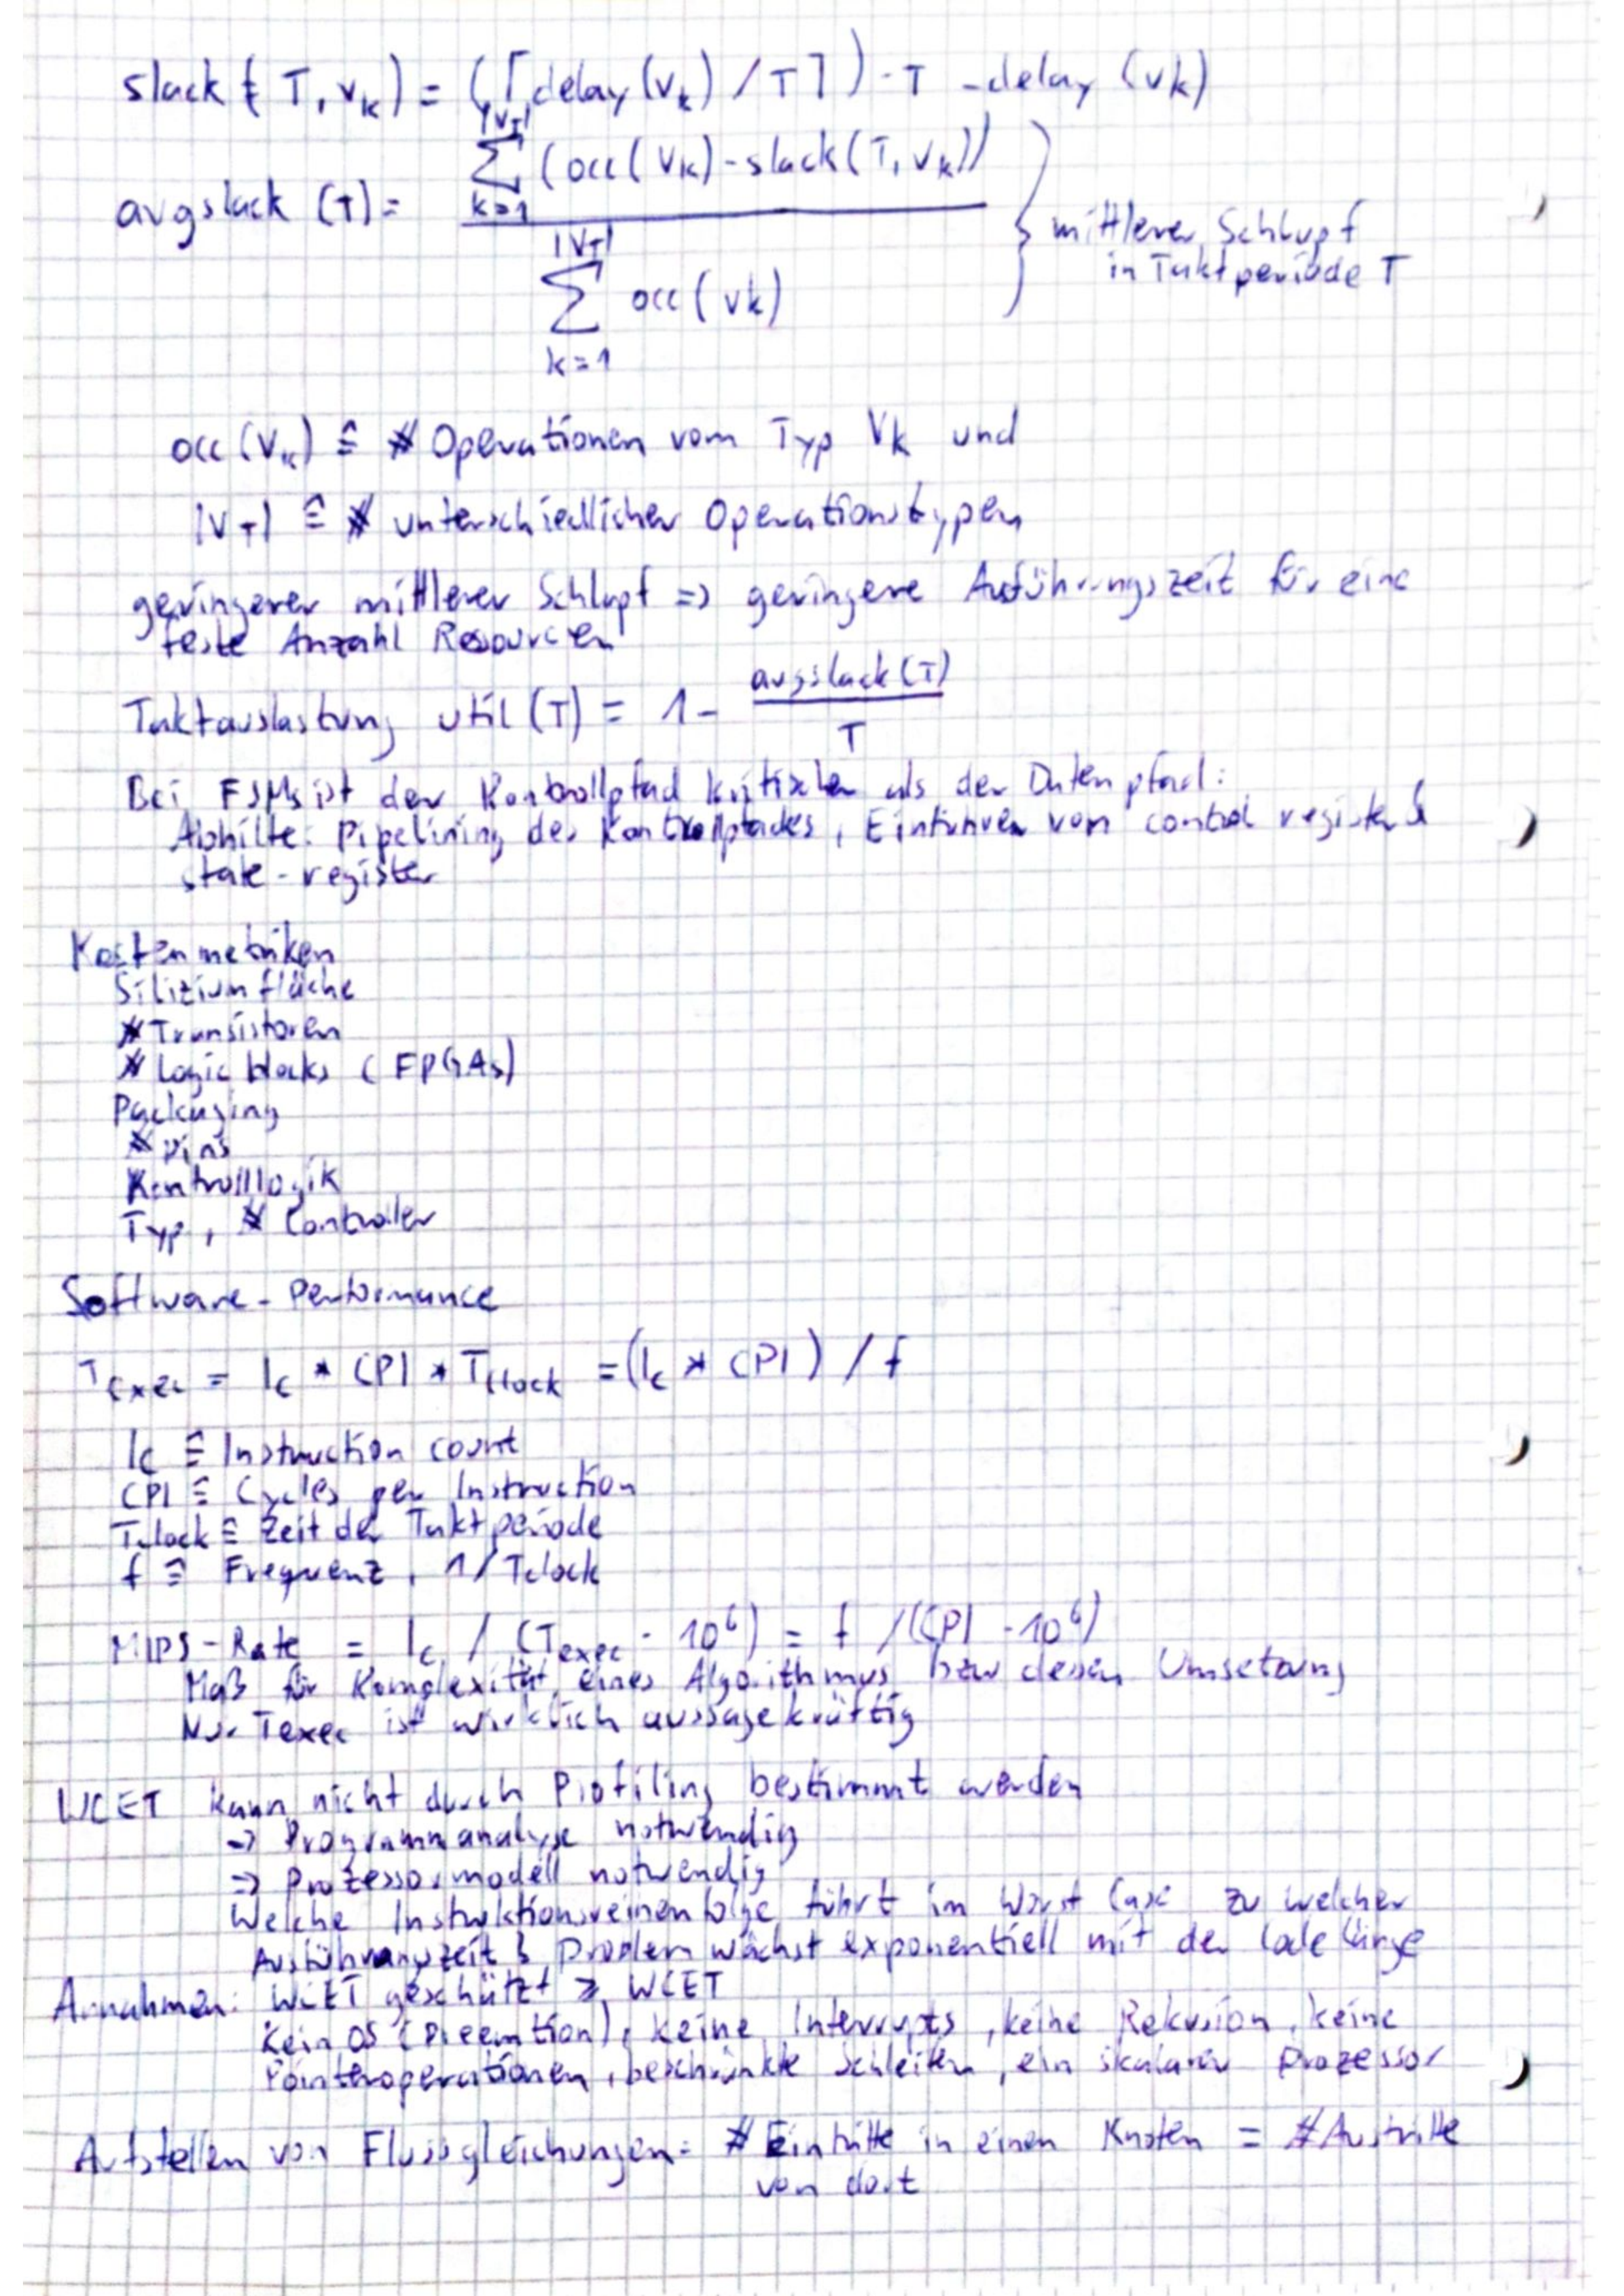 slack ( T, vk ) = ( ⌈ delay (vk) / T ⌉ ) · T - delay (vk)
avgslack (T) = |VT| ∑ k=1 (occ(vk) - slack(T, vk)) / |VT| ∑ k=1 occ(vk) } mittlerer Schlupf
in Taktperiode T
occ (Vk) ≙ # Operationen vom Typ Vk und
|VT| ≙ # unterschiedlicher Operationstypen
geringerer mittlerer Schlupf => geringere Ausführungszeit für eine
feste Anzahl Resourcen
Taktauslastung util (T) = 1 - avgslack (T) / T
Bei FSMs ist der Kontrollpfad kritischer als der Datenpfad:
Abhilfe: Pipelining des Kontrollpfades, Einführen von control register &
state-register
Kostenmetriken
Siliziumfläche
# Transistoren
# Logic blocks (FPGAs)
Packaging
# Pins
Kontrolllogik
Typ, # Controller
Software-Performance
Texec = Ic * CPI * Tclock = (Ic * CPI) / f
Ic ≙ Instruction count
CPI ≙ Cycles per Instruction
Tclock ≙ Zeit der Taktperiode
f ≙ Frequenz, 1/Tclock
MIPS-Rate = Ic / (Texec · 10^6) = f / (CPI · 10^6)
Maß für Komplexität eines Algorithmus bzw dessen Umsetzung
Nur Texec ist wirklich aussagekräftig
WCET kann nicht durch Profiling bestimmt werden
=> Programmanalyse notwendig
=> Prozessormodell notwendig
Welche Instruktionsreihenfolge führt im Worst Case zu welcher
Ausführungszeit? Problem wächst exponentiell mit der Codelänge
Annahmen: WCET geschätzt ≥ WCET
Kein OS (Preemtion), keine Interrupts, keine Rekusion, keine
Pointeroperationen, beschränkte Schleifen, ein skalarer Prozessor
Aufstellen von Flussgleichungen: # Eintritte in einen Knoten = # Austritte
von dort